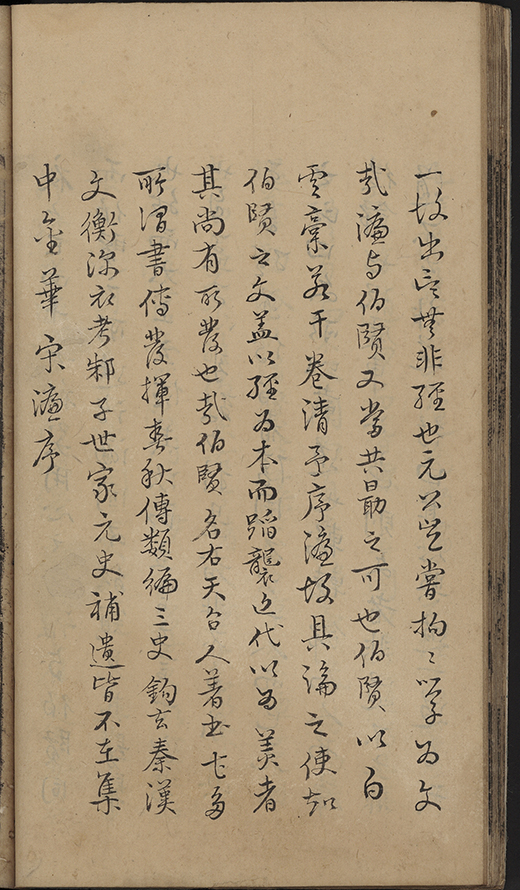 一故出言無非經也元公豈嘗拘〻學為文
哉濂與伯賢又當共勗之可也伯賢以白
雲稾若干卷請予序濂故具論之使知
伯賢之文蓋以經為本而蹈襲近代以為美者
其尚有所發也哉伯賢名右天台人著書尤多
所謂書傳發揮春秋傳類編三史鉤玄秦漢
文衡深衣考邾子世家元史補遺皆不在集
中金華宋濂序